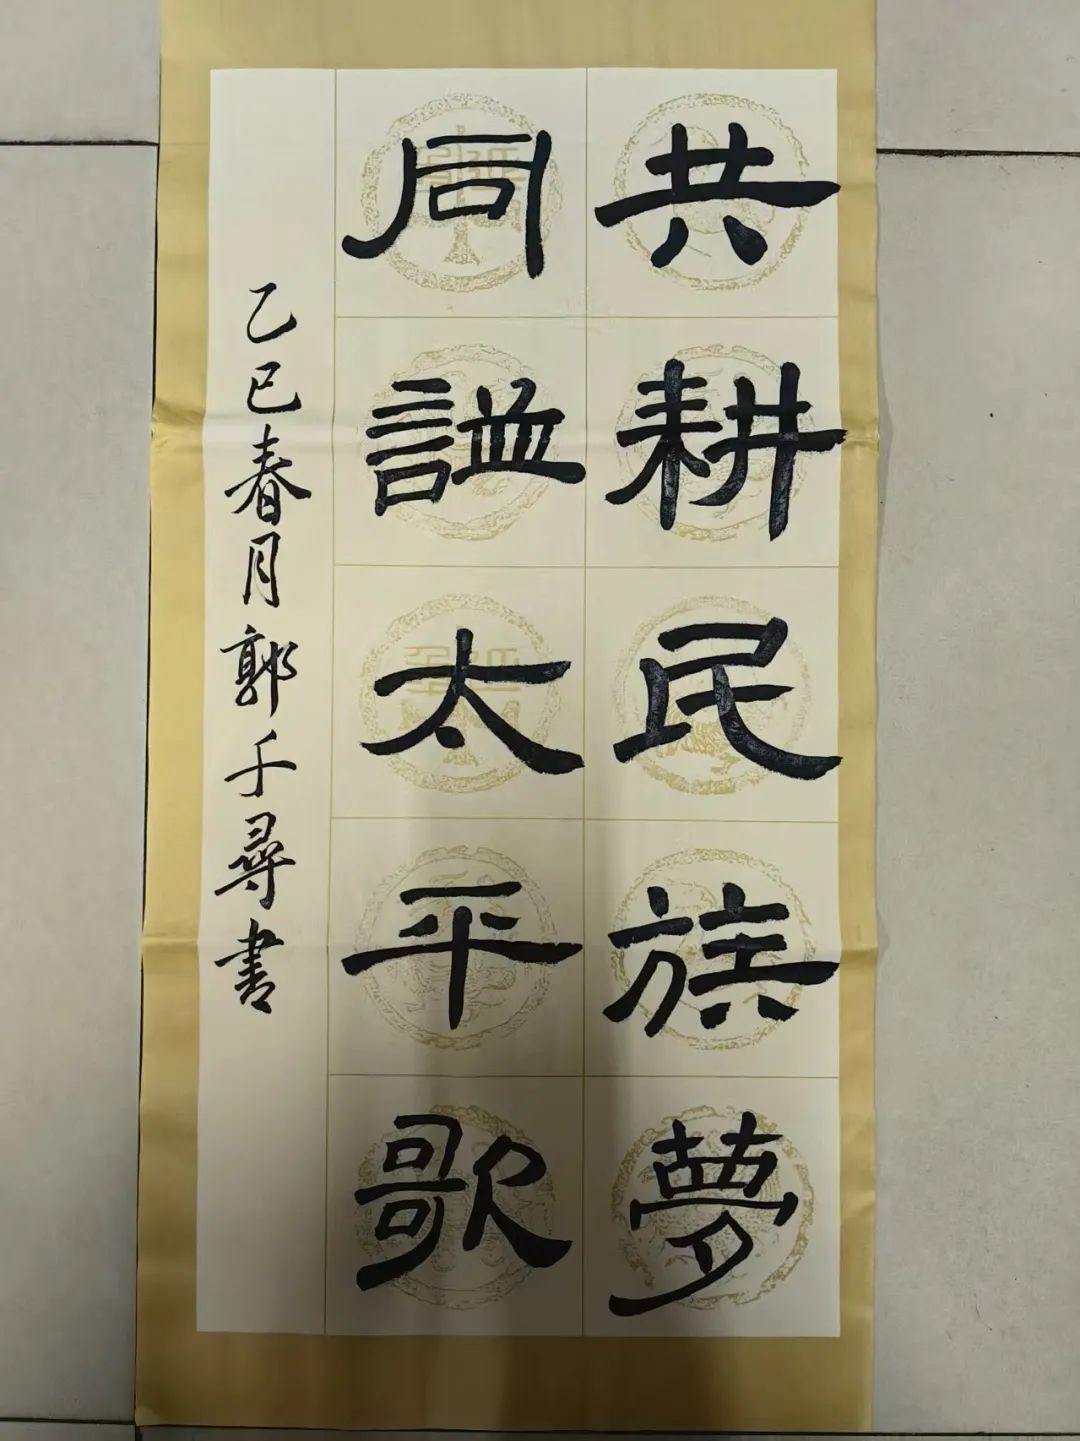 共耕民族夢
同謐太平歌
乙巳春月郭千尋書